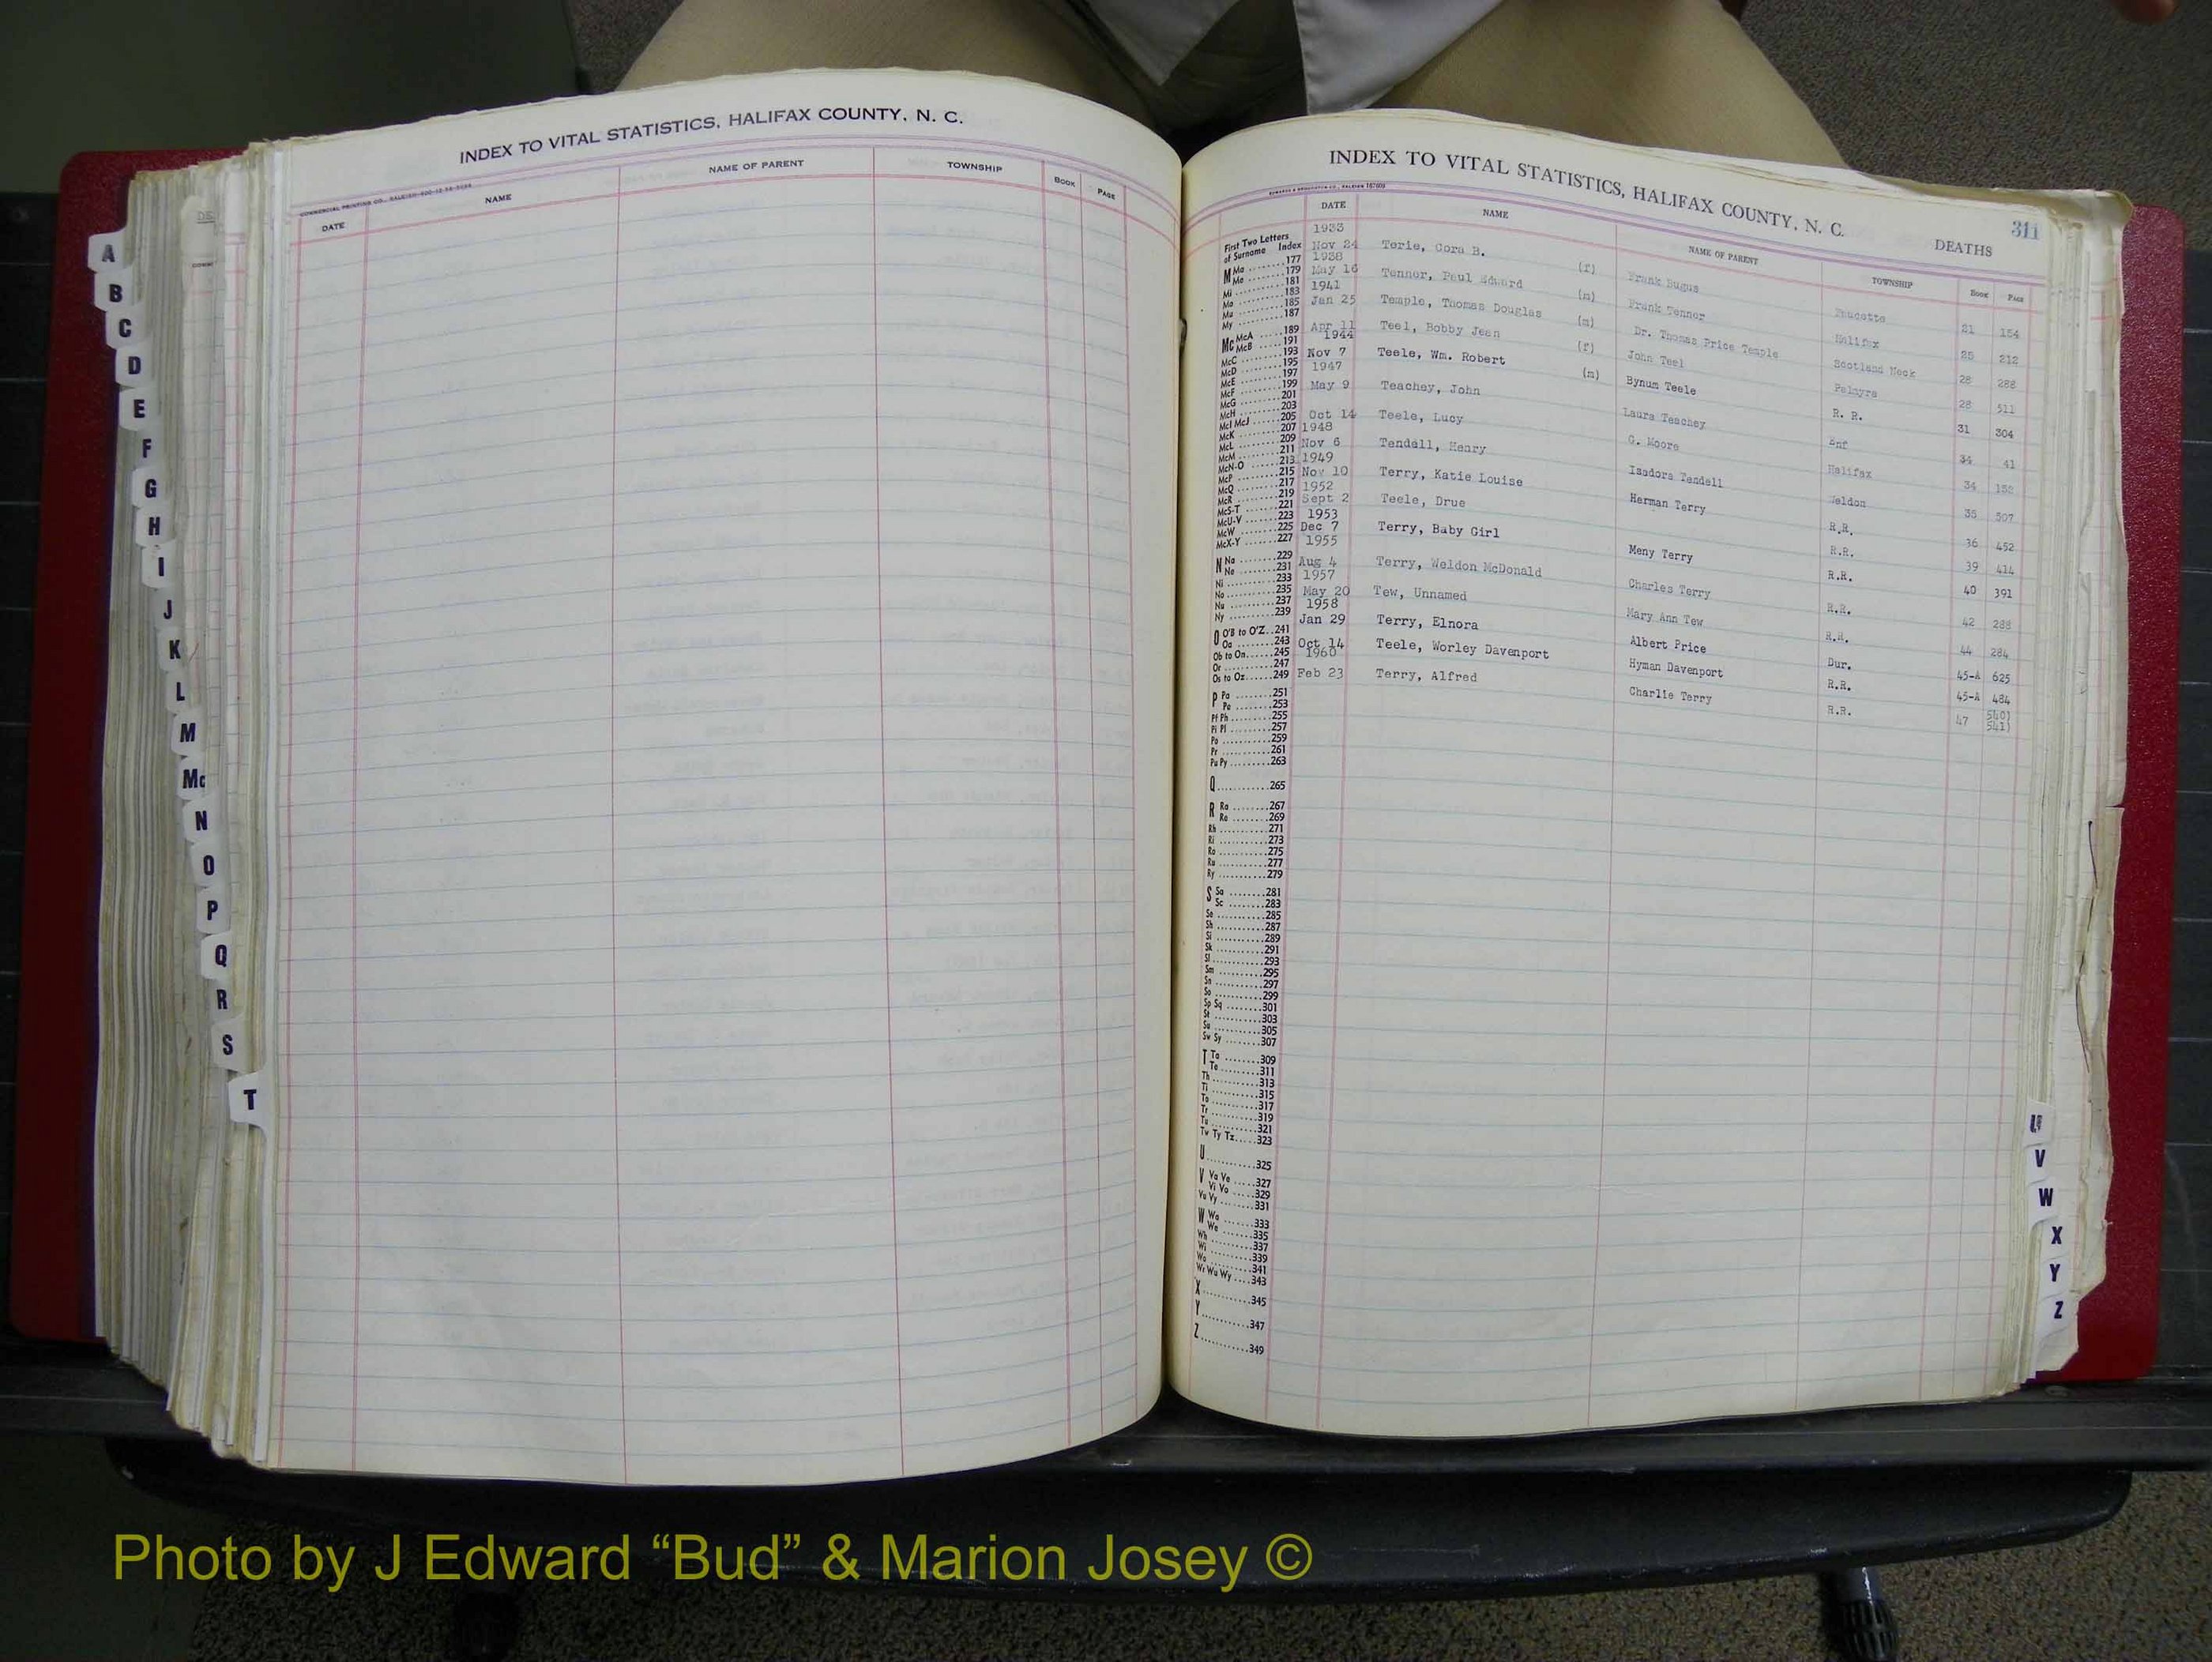 INDEX TO VITAL STATISTICS, HALIFAX COUNTY, N. C.
DATE NAME NAME OF PARENT TOWNSHIP BOOK PAGE
A
B
C
D
E
F
G
H
I
J
K
L
M
Mc
N
O
P
Q
R
S
T
INDEX TO VITAL STATISTICS, HALIFAX COUNTY, N. C.
311
DEATHS
DATE NAME NAME OF PARENT TOWNSHIP Book Page
1933
Nov 24 Terie, Cora B. (f) Frank Bugus 21 154
1938
May 16 Tennor, Paul Edward (m) Frank Tennor Halifax 25 212
1941
Jan 25 Temple, Thomas Douglas (m) Dr. Thomas Price Temple Scotland Neck 28 288
Apr 11 Teel, Bobby Jean (f) John Teel Palmyra 28 511
1944
Nov 7 Teele, Wm. Robert (m) Bynum Teele R. R. 31 304
1947
May 9 Teachey, John Laura Teachey Enf 34 41
Oct 14 Teele, Lucy G. Moore Halifax 34
1948
Nov 6 Tendell, Henry Isadora Tendell Weldon 35 507
1949
Nov 10 Terry, Katie Louise Herman Terry R.R. 36 452
1952
Sept 2 Teele, Drue R.R. 39 414
1953
Dec 7 Terry, Baby Girl Meny Terry R.R. 40 391
1955
Aug 4 Terry, Weldon McDonald Charles Terry R.R. 42 288
1957
May 20 Tew, Unnamed Mary Ann Tew R.R. 44 284
1958
Jan 29 Terry, Elnora Albert Price Dur. 45-A 625
Oct 14 Teele, Worley Davenport Hyman Davenport R.R. 45-A 484
1960
Feb 23 Terry, Alfred Charlie Terry R.R. 47 540)
541)
First Two Letters
of Surname Index
M Ma ........177
Me ........179
Mi ........181
Mo ........183
Mu ........185
My ........187
Mc McA ......189
McB ......191
McC ........193
McD ........195
McE ........197
McF ........199
McG ........201
McH ........203
McI McJ ....205
McK ........207
McL ........209
McM ........211
McN-O ......213
McP ........215
McQ ........217
McR ........219
McS-T ......221
McU-V ......223
McW ........225
McX-Y ......227
N Na ........229
Ne ........231
Ni ........233
No ........235
Nu ........237
Ny ........239
O O'B to O'Z..241
Oa ........243
Ob to On......245
Or ........247
Os to Oz......249
P Pa ........251
Pe ........253
Pf Ph ........255
Pi Pl ........257
Po ........259
Pr ........261
Pu Py ........263
Q ........265
R Ra ........267
Re ........269
Rh ........271
Ri ........273
Ro ........275
Ru ........277
Ry ........279
S Sa ........281
Sc ........283
Se ........285
Sh ........287
Si ........289
Sk ........291
Sl ........293
Sm ........295
Sn ........297
So ........299
Sp Sq ........301
St ........303
Su ........305
Sw Sy ........307
T Ta ........309
Te ........311
Th ........313
Ti ........315
To ........317
Tr ........319
Tu ........321
Tw Ty Tz.....323
U ........325
V Va Ve .....327
Vi Vo .....329
Vu Vy ........331
W Wa ........333
We ........335
Wh ........337
Wi ........339
Wo ........341
Wr Wu Wy ....343
X ........345
Y ........347
Z ........349
U
V
W
X
Y
Z
Photo by J Edward “Bud” & Marion Josey ©